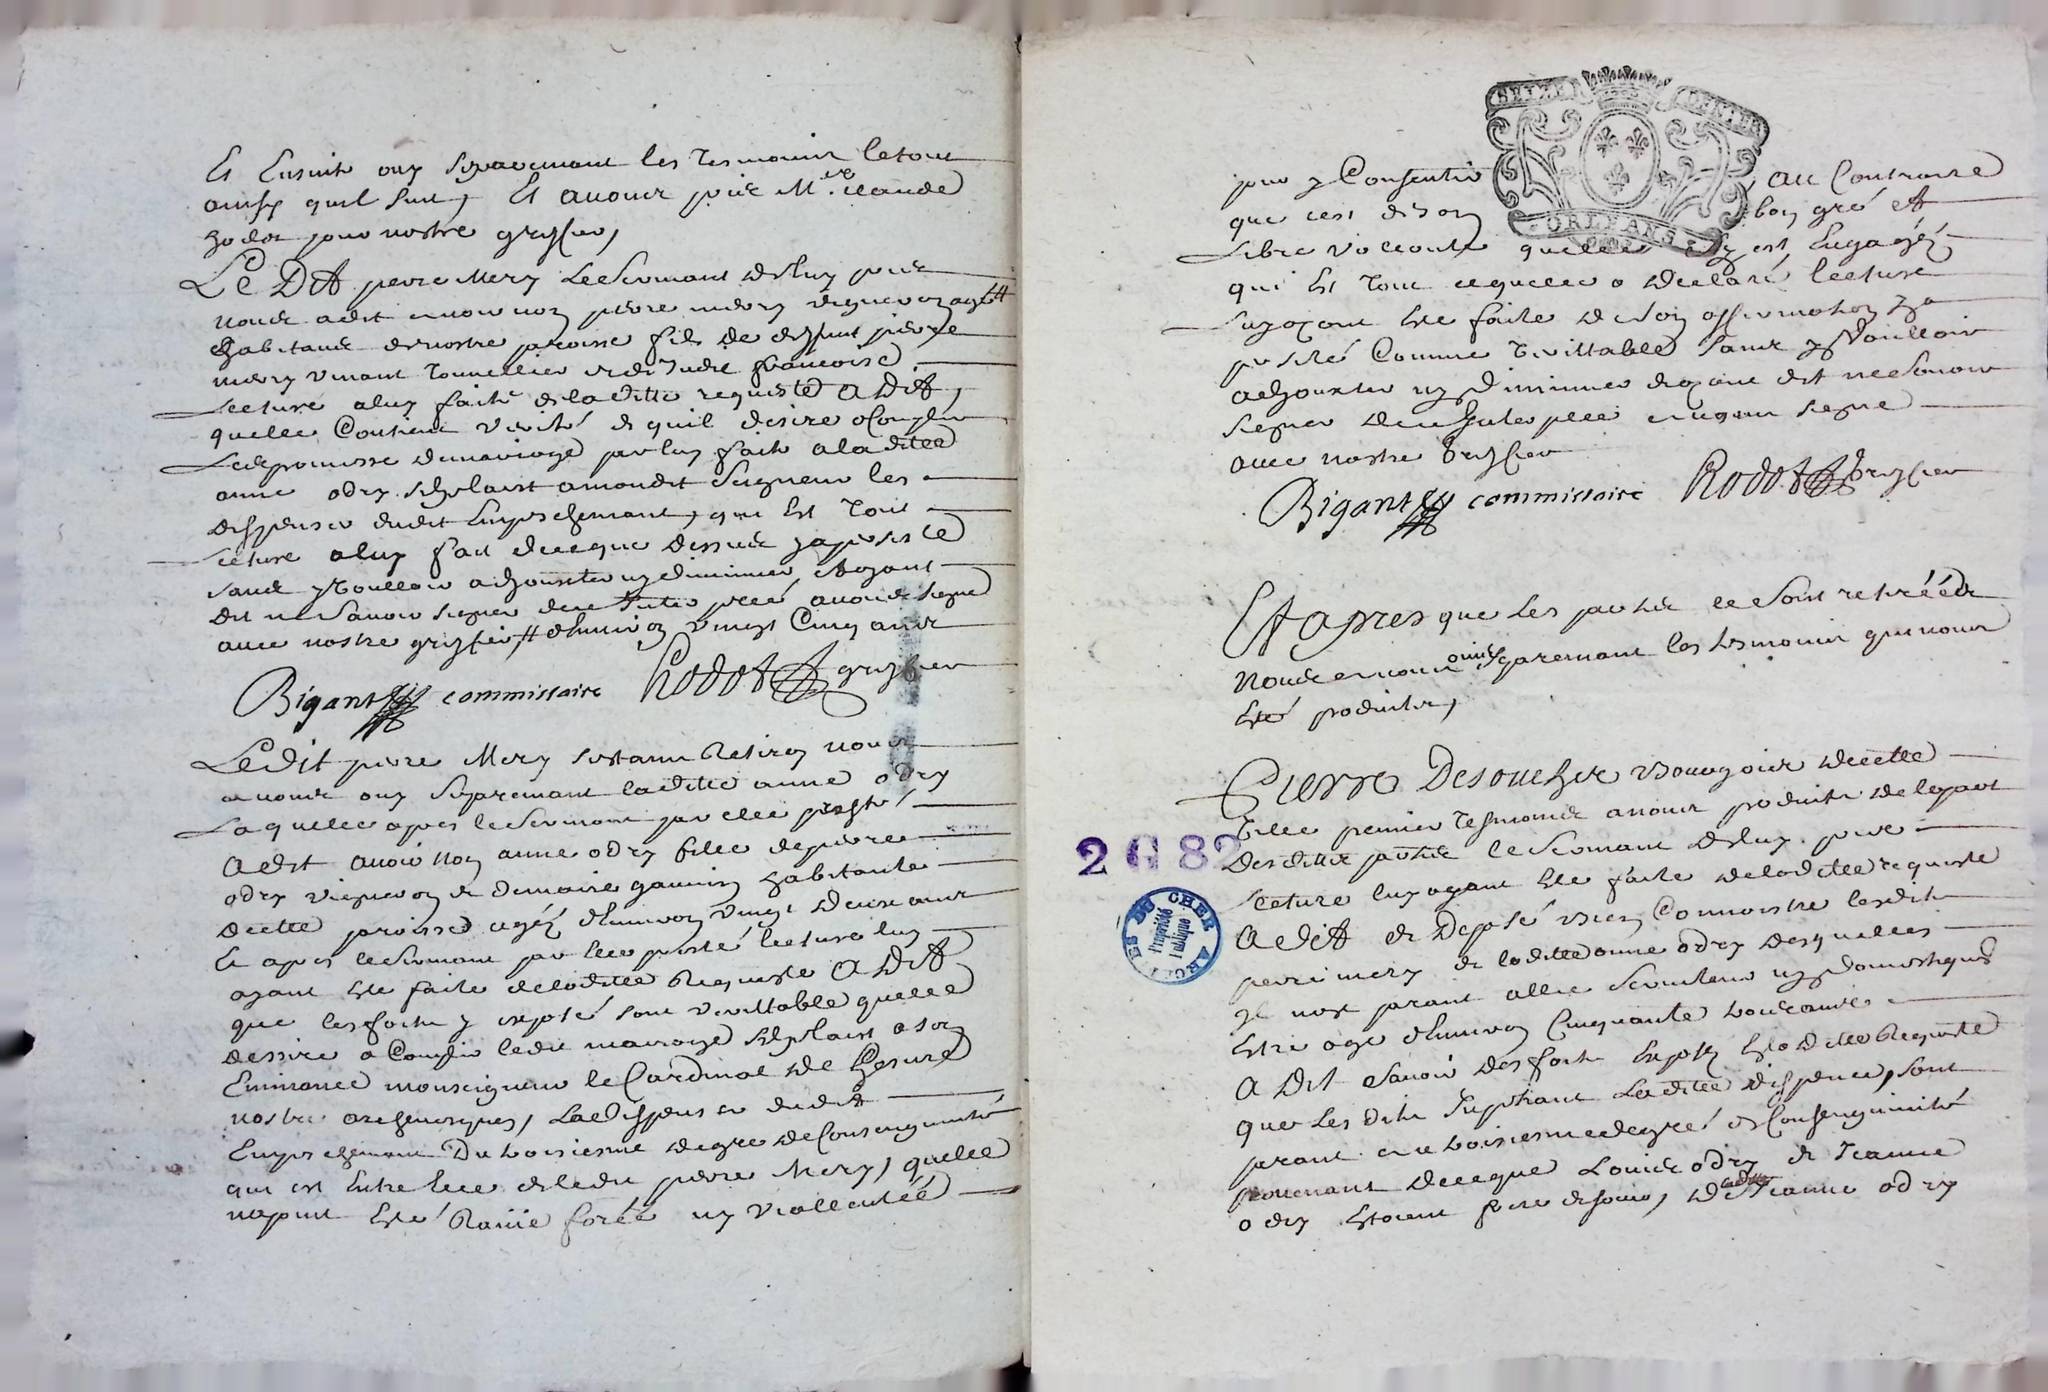 Et Ensuite ouy separemant les tesmoins le tout
ainsy quil suit, Et avons pris Mtre claude
Rodot pour nostre greffier,
Le Dit pierre Mery Le Sermant de luy pris
nous a dit avoir nom pierre mery vigneron agé #
habitans de nostre paroisse fils de deffunt pierre
mery vivant tonnellier et de Judic francoise
Lecture a luy faite de la ditte requiste A Dit,
quelle Contient verité et quil desire acomplir
Les promisse de mariage par luy faite a la ditte
anne odry sil plaist a mondit Seigneur les
dispenser dudit Empeschemant, qui Est Tout
Lecture a luy fait de ce que dessus y a persisté
sans y Voulloir adjouster ny diminuer, et ayant
dit ne Savoir signer de ce Interpellé avons signé
avec nostre greffier, # d'environ vingt Cinq ans
Bigant commissaire Rodot greffier
Ledit pierre Mery sestant Retiré nous
avons ouy separemant laditte anne odry
Laquelle apres le Sermant par elle presté
A dit avoir nom anne odry fille de pierre
odry vigneron et de marie habitante
de cette paroisse agéé d'environ vingt deux ans
Et apres le Sermant par elle presté lecture luy
ayant Esté faite de laditte Requiste A Dit
que les faits y exposé sont verittable quelle
dessire acomplir ledit mariage sil plaist a son
Eminance monseigneur le Cardinal de Gesvre
nostre archevesque, La dispenser dudit
Empeschemant Du troisiesme degre de Consenguinité
qui est Entre Elle et ledit pierre Mery, quelle
na point Esté Ravie forcéé ny viollentéé
pour y Consentir au Contraire
que cest de son bon gré et
Libre vollonté quelle sy est Engagéé
qui Est Tout ce quelle a declaré lecture
luy ayant Esté faite de son affirmation y a
persisté Comme verittable sans y Voulloir
adjouxter ny diminuer et ayant dit ne Savoir
signer de ce Interpellé avons signé
avec nostre Greffier
Bigant commissaire Rodot Greffier
Et apres que Les parties se sont retiréés
Nous avons ouis separemant les tesmoins qui nous
Esté produits,
Pierre Desouches Bourgois de cette
Ville premier Tesmoins a nous produits de la part
Desditte parties le Sermant de luy pris
Lecture luy ayant Esté faite de laditte requiste
A dit et Deposé Bien Connoistre lesdits
pierre mery et laditte anne odry desquelles
Il nest parant allié Serviteur ny domestique
Estre agé d'environ Cinquante trois ans
A Dit Savoir Des faits Exposé En laditte Requiste
que Les dits Supliant Laditte dispence, sont
parant au troisiesme degré de Consenguinité
provenant de ce que Louis odry et Jeanne
odry Estoient frere et soeur, De laditte Jeanne odry
SEIZE DENIERS
ORLEANS
2 G 82
ARCHIVES DU CHER
Propriété publique